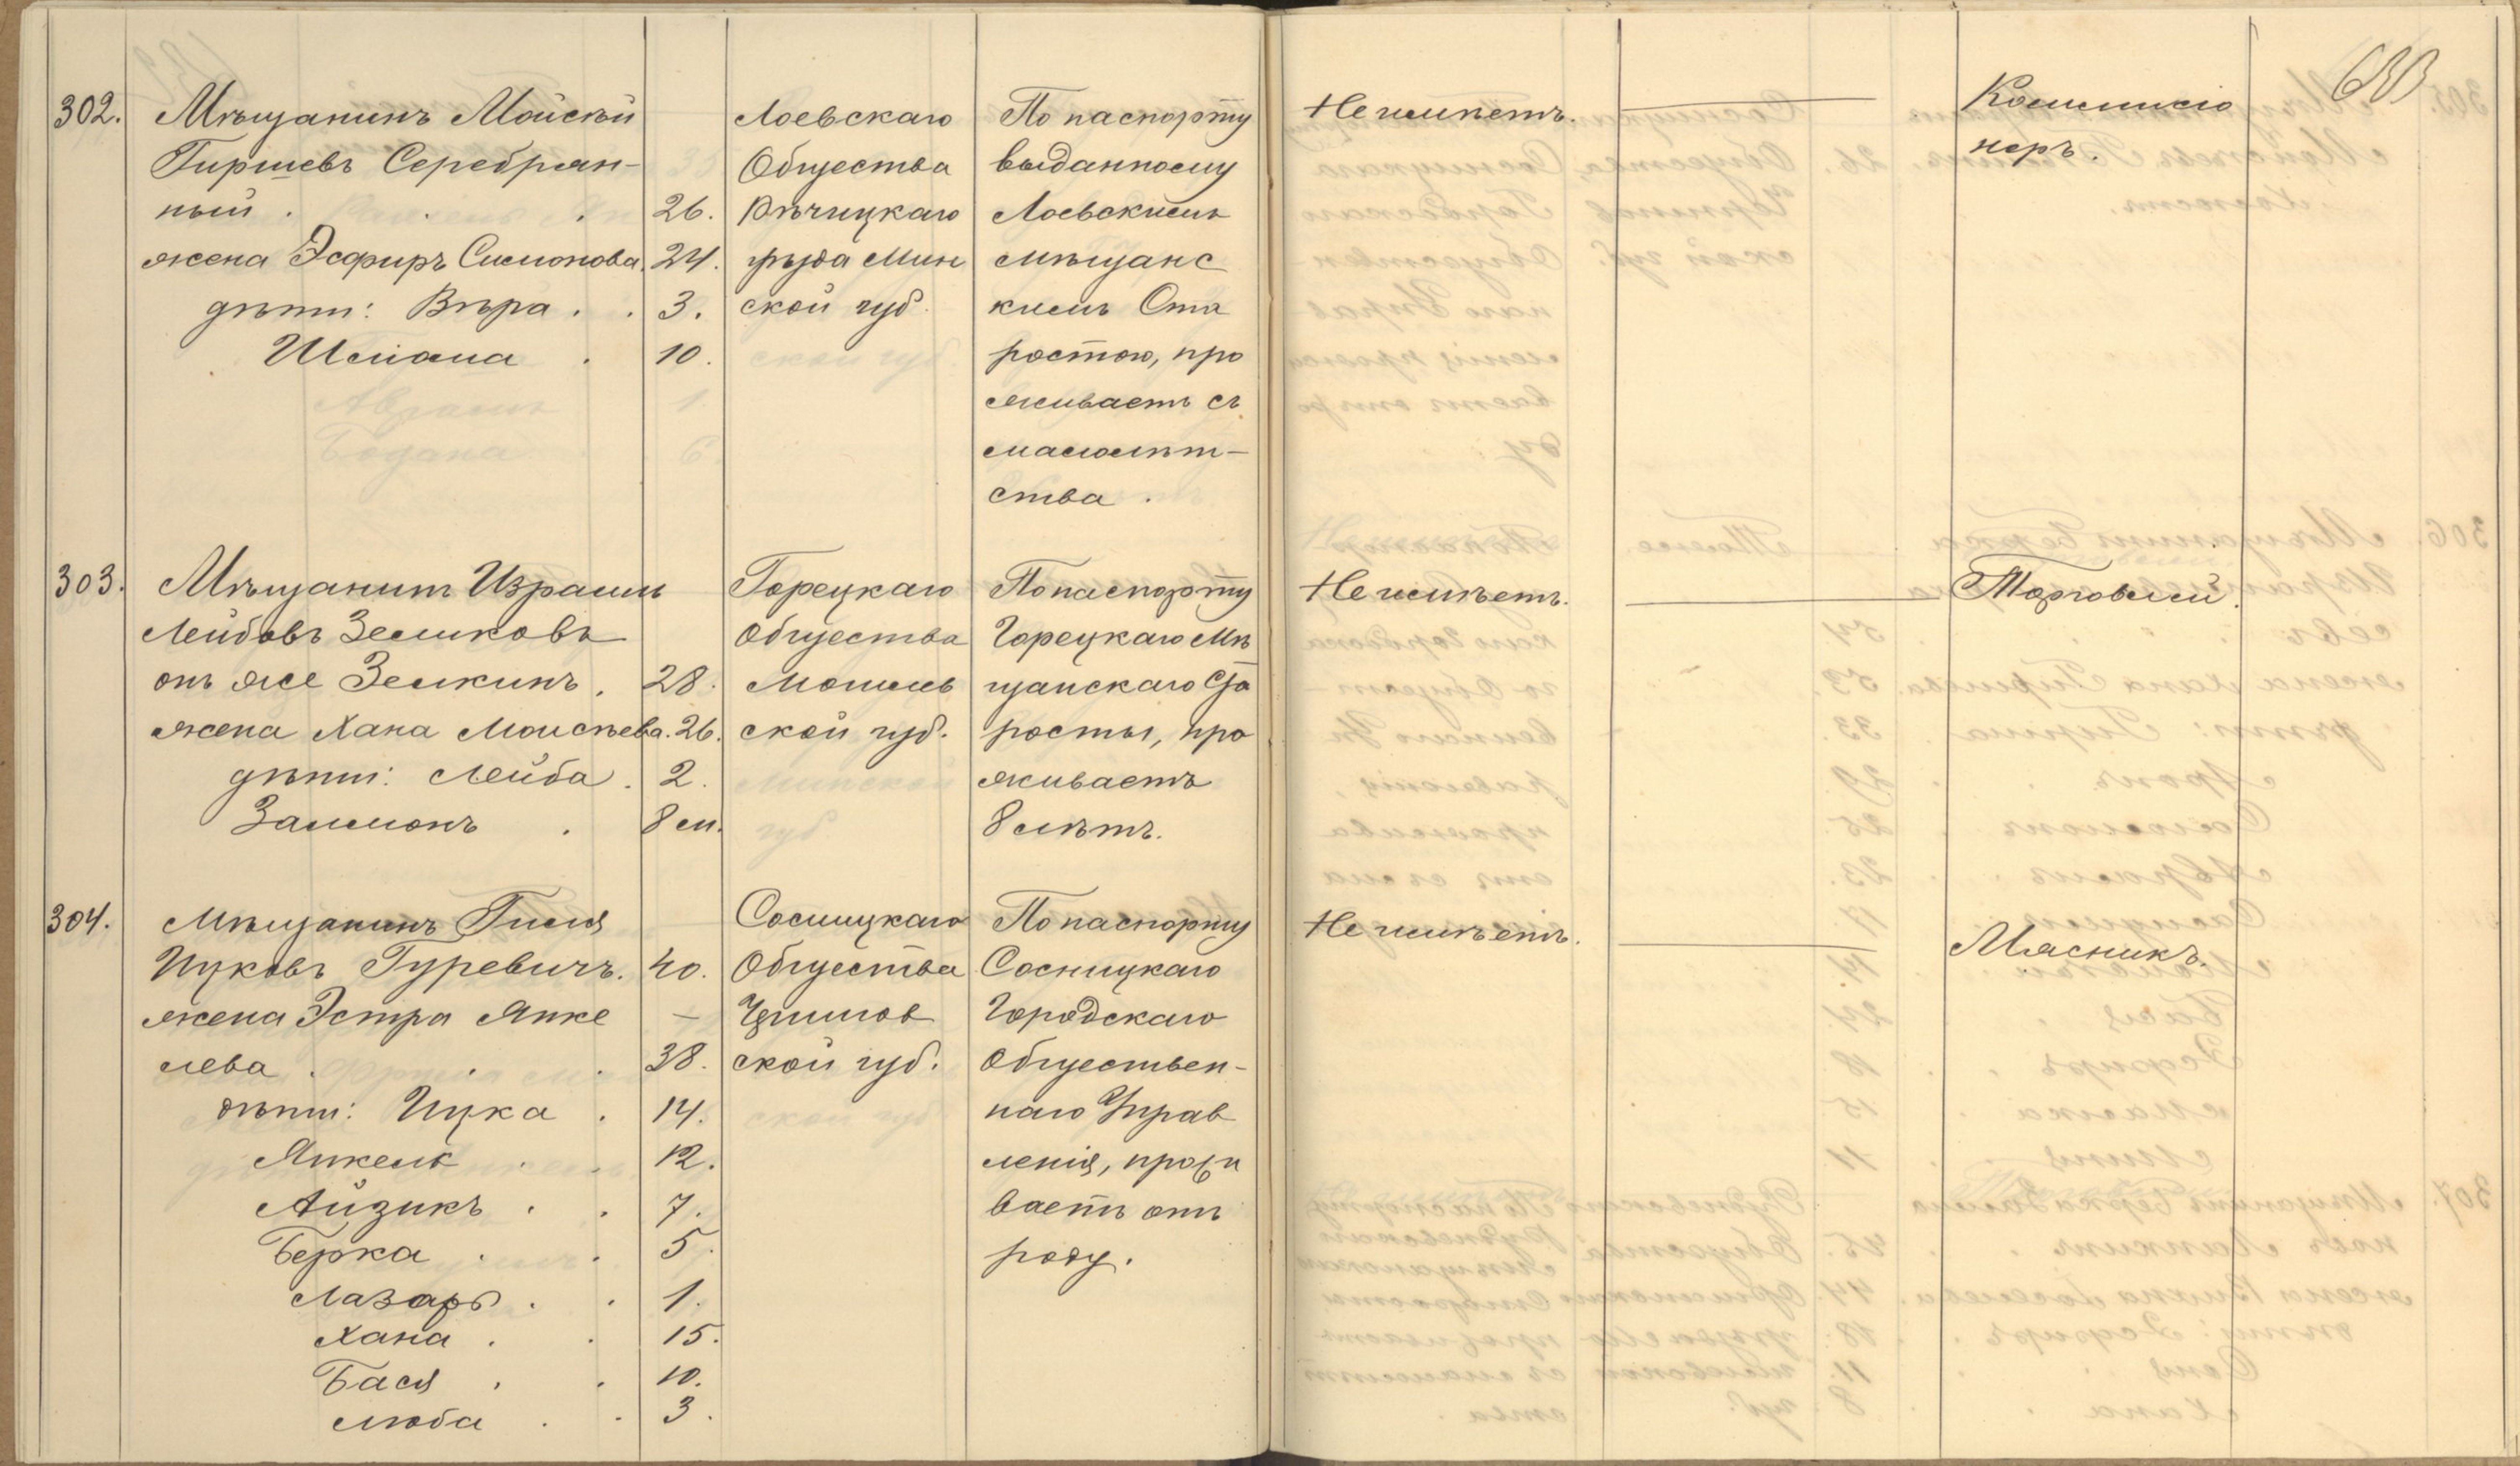 633
302.
Мѣщанинъ Мойсѣй
Гиршевъ Серебрян-
ный . . . 26.
жена Эсфирь Симонова. 24.
дѣти: Вѣра . . 3.
Шліома . 10.
Лоевскаго
Общества
Рѣчицкаго
уѣзда Мин
ской губ.
По паспорту
выданному
Лоевскимъ
мѣщанс
кимъ Ста
ростою, про
живаетъ съ
малолѣт-
ства .
Не имѣетъ.
Коммисіо
неръ.
303.
Мѣщанинъ Израиль
Лейбовъ Земиковъ
онъ же Земкинъ . 28.
жена Хана Моисѣева. 26.
дѣти: Лейба . 2.
Залмонъ . 8 м.
Горецкаго
Общества
Могилев
ской губ.
По паспорту
Горецкаго Мѣ
щанскаго Ста
росты, про
живаетъ
8 лѣтъ.
Не имѣетъ.
Торговлей.
304.
Мѣщанинъ Гиля
Ицковъ Гуревичъ. 40.
жена Эстра Янке —
лева . . . 38.
дѣти: Ицка . 14.
Янкель . . 12.
Айзикъ . . 7.
Берка . . 5.
Лазарь . . 1.
Хана . . 15.
Бася . . 10.
Люба . . 3.
Сосницкаго
Общества
Чернигов
ской губ.
По паспорту
Сосницкаго
Городскаго
Обществен-
наго Управ
ленія, прожи
ваетъ отъ
роду.
Не имѣетъ.
Мясникъ.